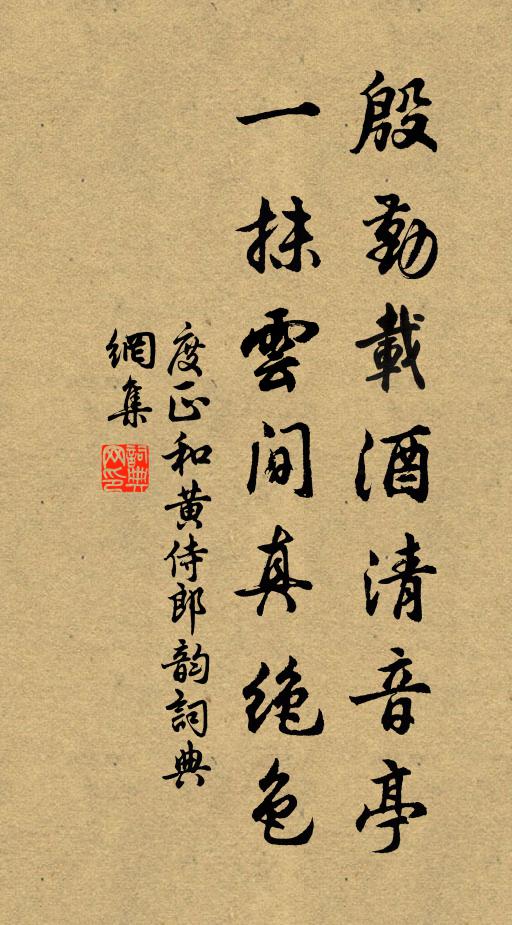 殷勤載酒清音亭
一抹雲間真絕色
度正和黃侍郎韵詞典
網集
詞典
网印